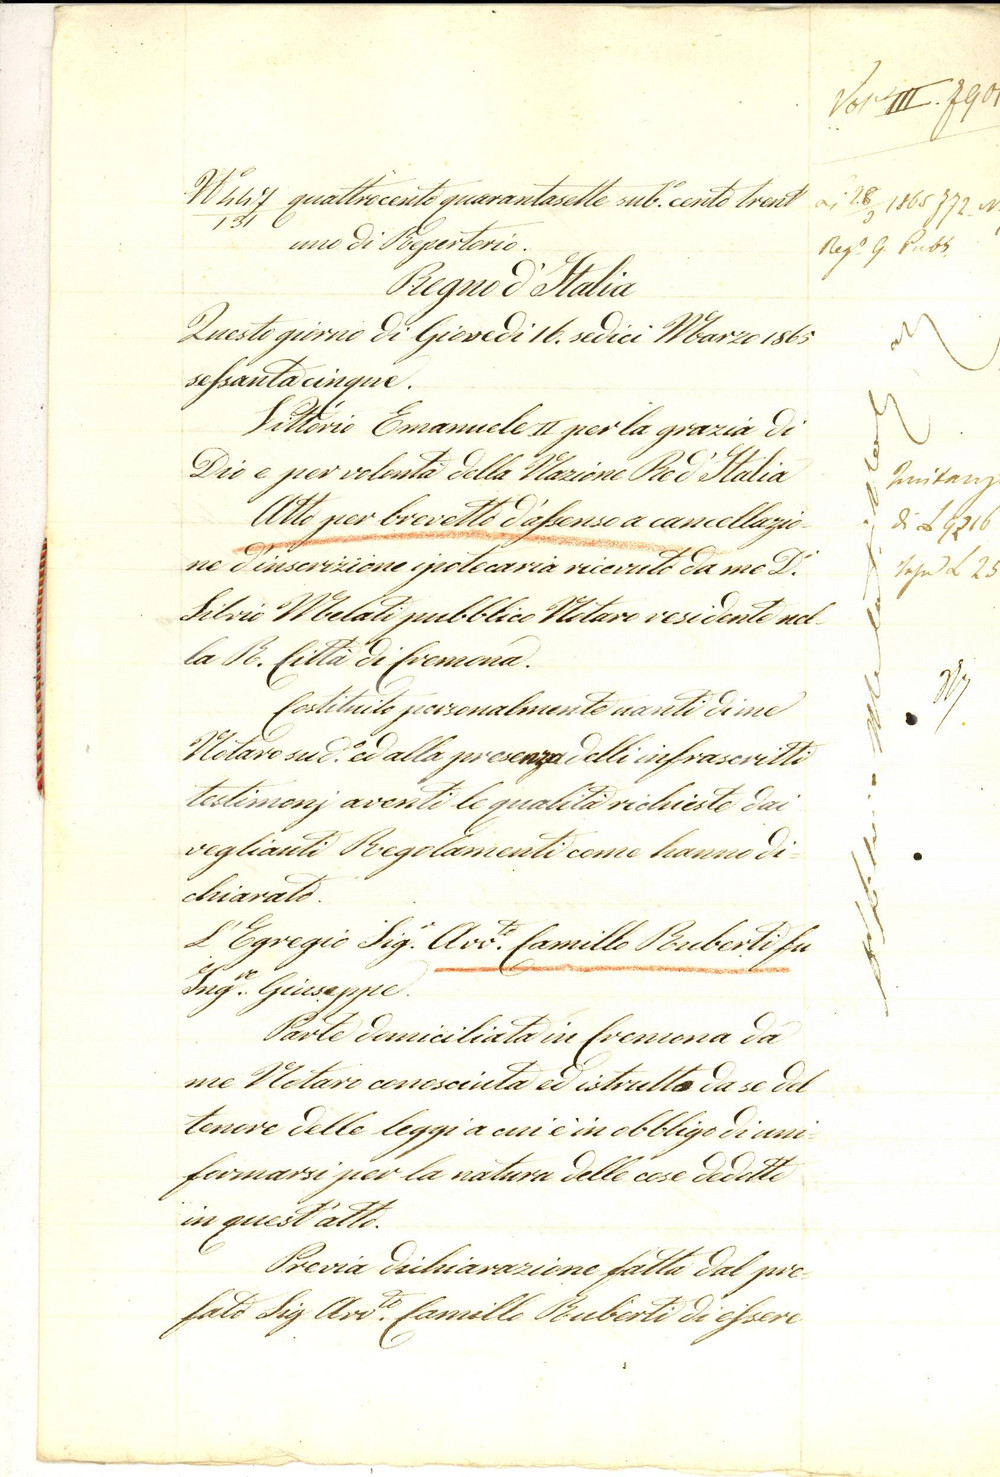 N° 447 quattrocento quarantasette sub.° cento trent'
131
uno di Repertorio.
Regno d'Italia
Questo giorno di Giovedi 16. sedici Marzo 1865
sessantacinque.
Vittorio Emanuele II per la grazia di
Dio e per volontà della Nazione Re d'Italia
Atto per brevetto d'assenso a cancellazio-
ne d'inscrizione ipotecaria ricevuto da me D.r
Silvio Melati pubblico Notaro residente nel-
la R. Città di Cremona.
Costituito personalmente nanti di me
Notaro sud.° ed alla presenza delli infrascritti
testimonj aventi le qualità richieste dai
veglianti Regolamenti come hanno di=
chiarato.
L'Egregio Sig.r Avv.to Camillo Ruberti fu
Ing.re Giuseppe.
Parte domiciliata in Cremona da
me Notaro conosciuta ed istrutta da se del
tenore delle leggi a cui è in obbligo di uni-
formarsi per la natura delle cose dedotte
in quest'atto.
Previa dichiarazione fatta dal pre-
fato Sig Avv.to Camillo Ruberti di essere
Vol III. 790
28 1865 772
3
Reg.° G. Pubb.
di £ 9216
£ 25